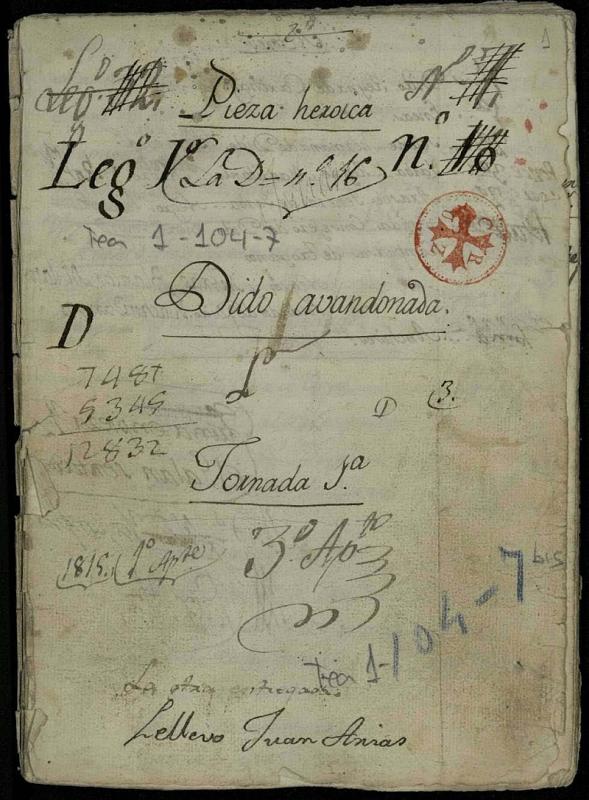 2º
1
Pieza heroica
Nº
Legº 1º La D – n.º 16 n.º 16
Tea 1-104-7
Dido avandonada.
D
7487
5345
12832
D 3.
Jornada 1.ª
1815. 1º Apte
3º. Apte
Tea 1-104-7
La otra entregada
Lellevo Juan Arias